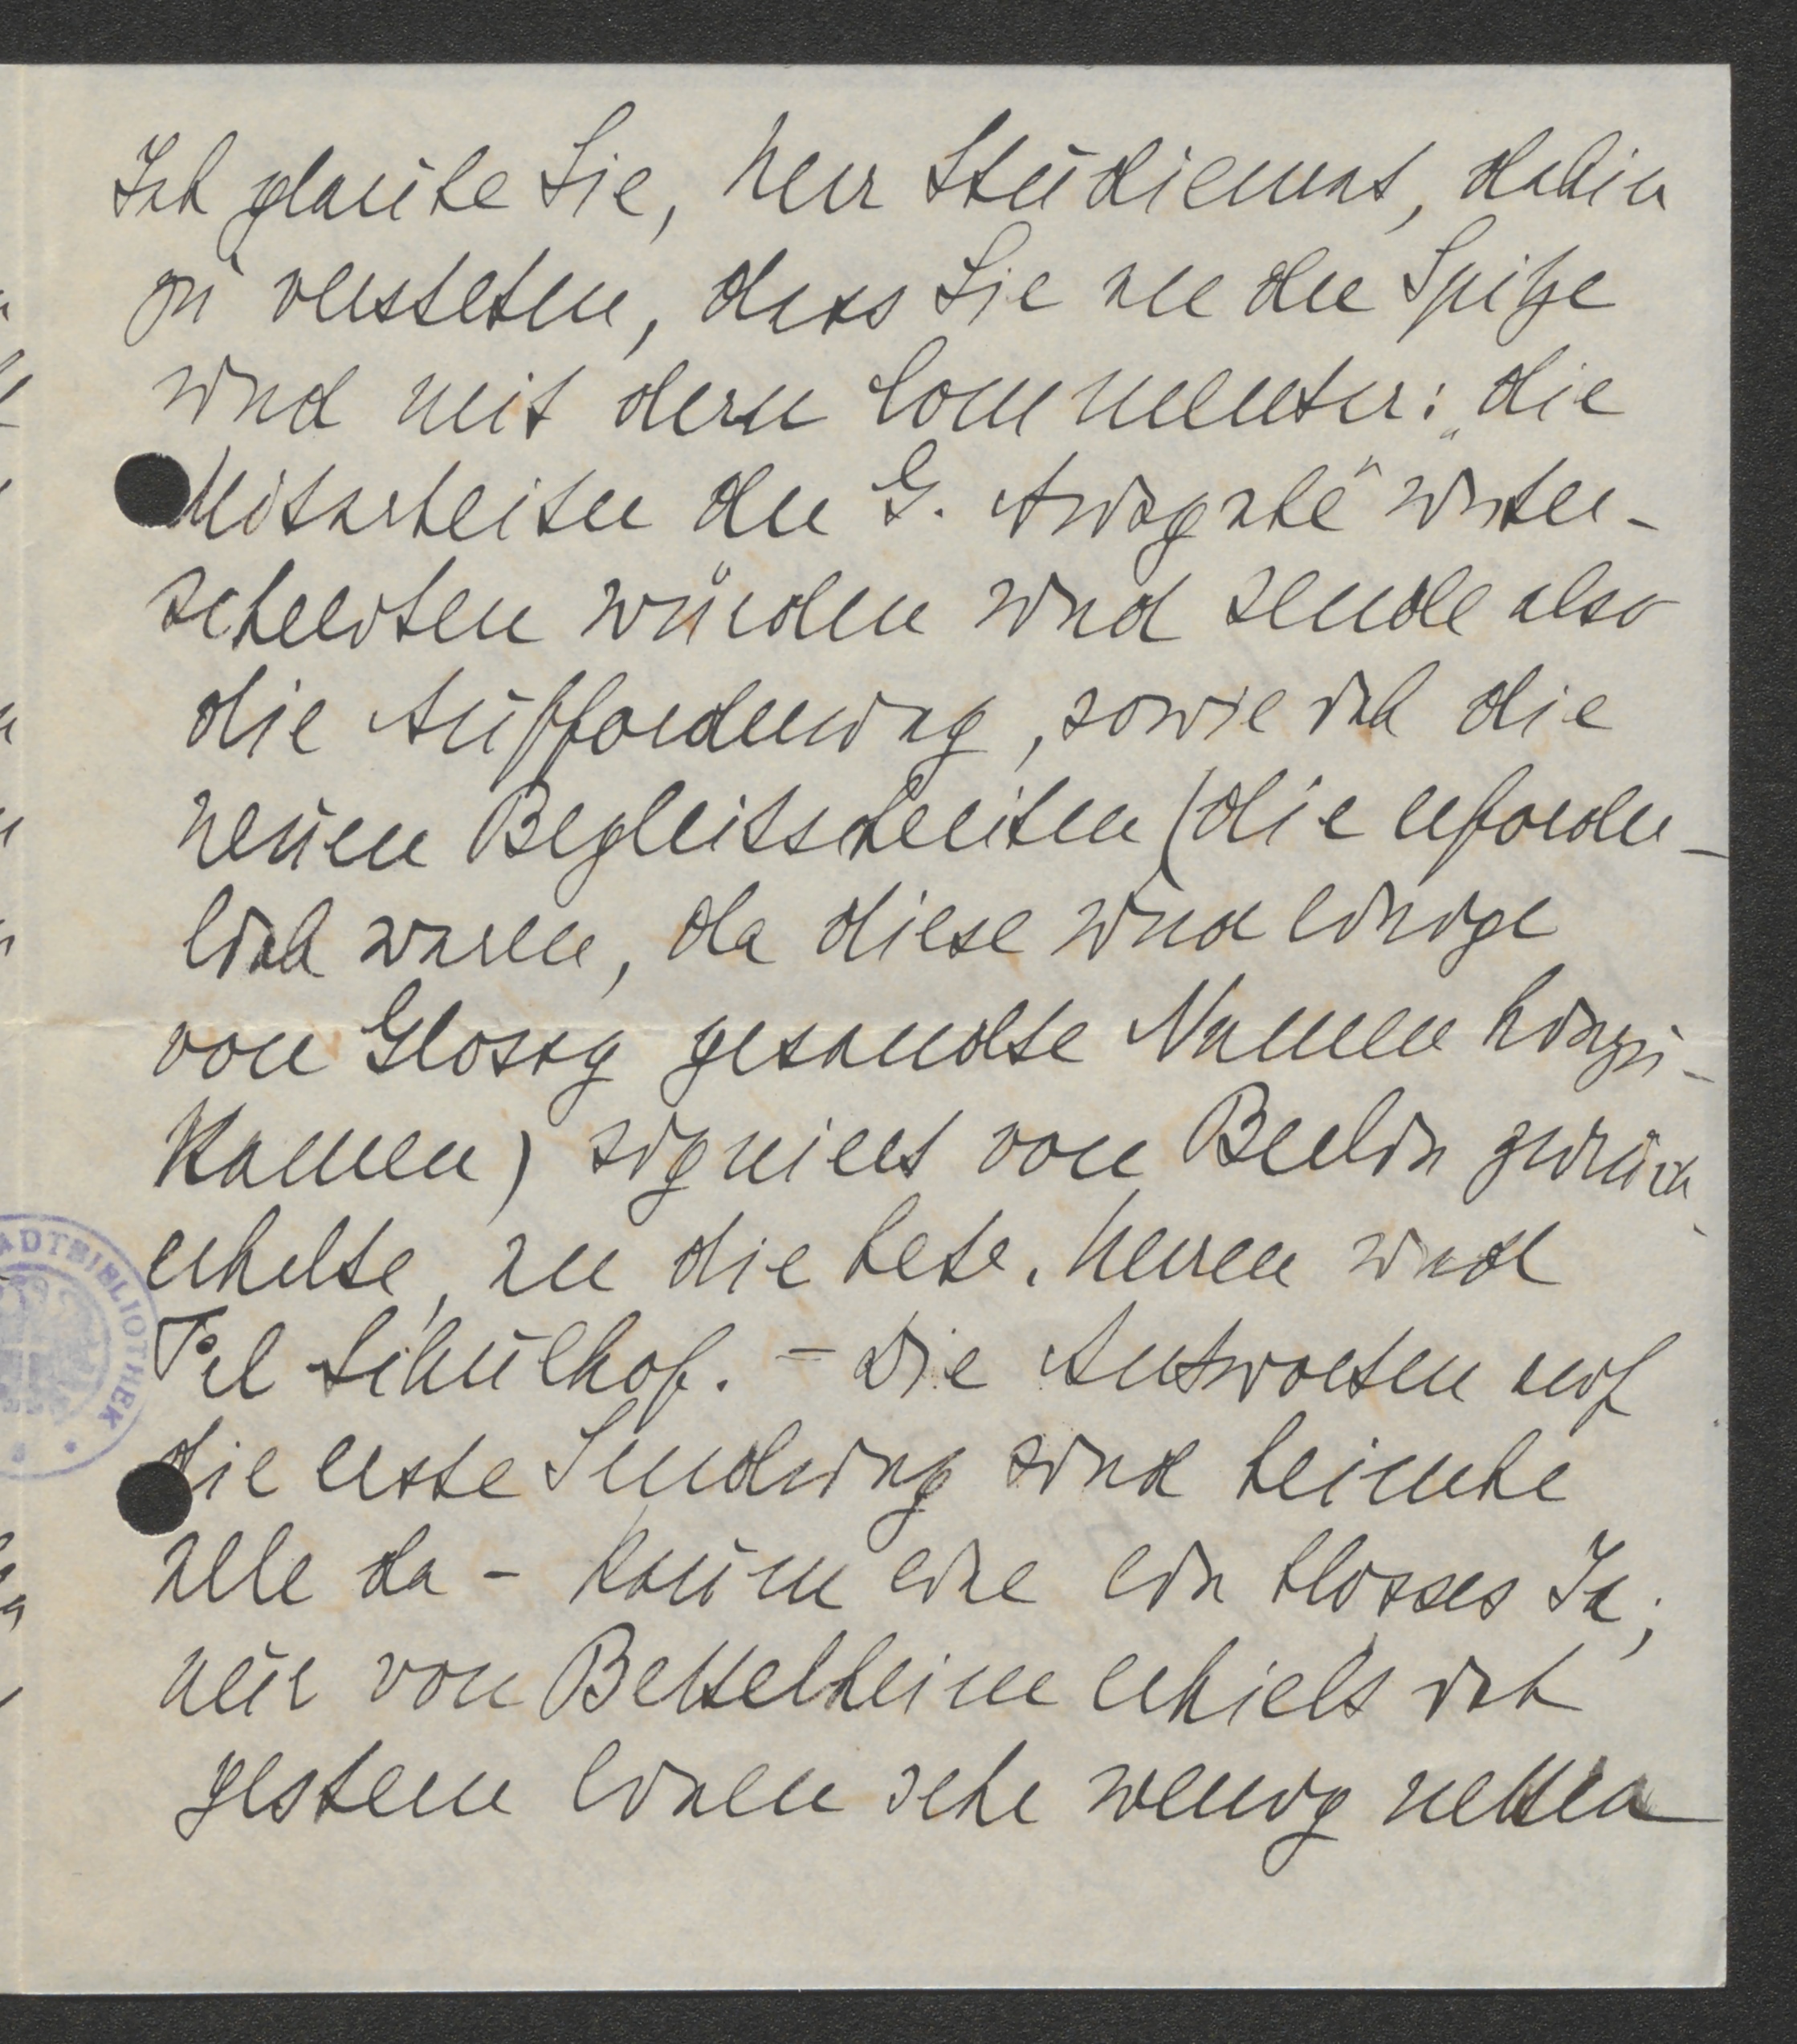 Ich glaube Sie, Herr Studienrat, dahin
zu verstehen, dass Sie an der Spitze
und mit dem Commentar: „die
Mitarbeiter der G. Ausgabe" unter-
schreiben würden und sende also
die Aufforderung, sowie ich die
neuen Begleitschreiben (die erforder-
lich waren, da diese und einige
von Glossy gesandte Namen hinzu-
kamen) signiert von Berlin zurück
erhalte, an die betr. Herren und
Frl Schulhof. – Die Antworten auf
die erste Sendung sind beinahe
alle da – kaum eine ein blosses Ja;
nur von Bettelheim erhielt ich
gestern einen sehr wenig netten
STADTBIBLIOTHEK